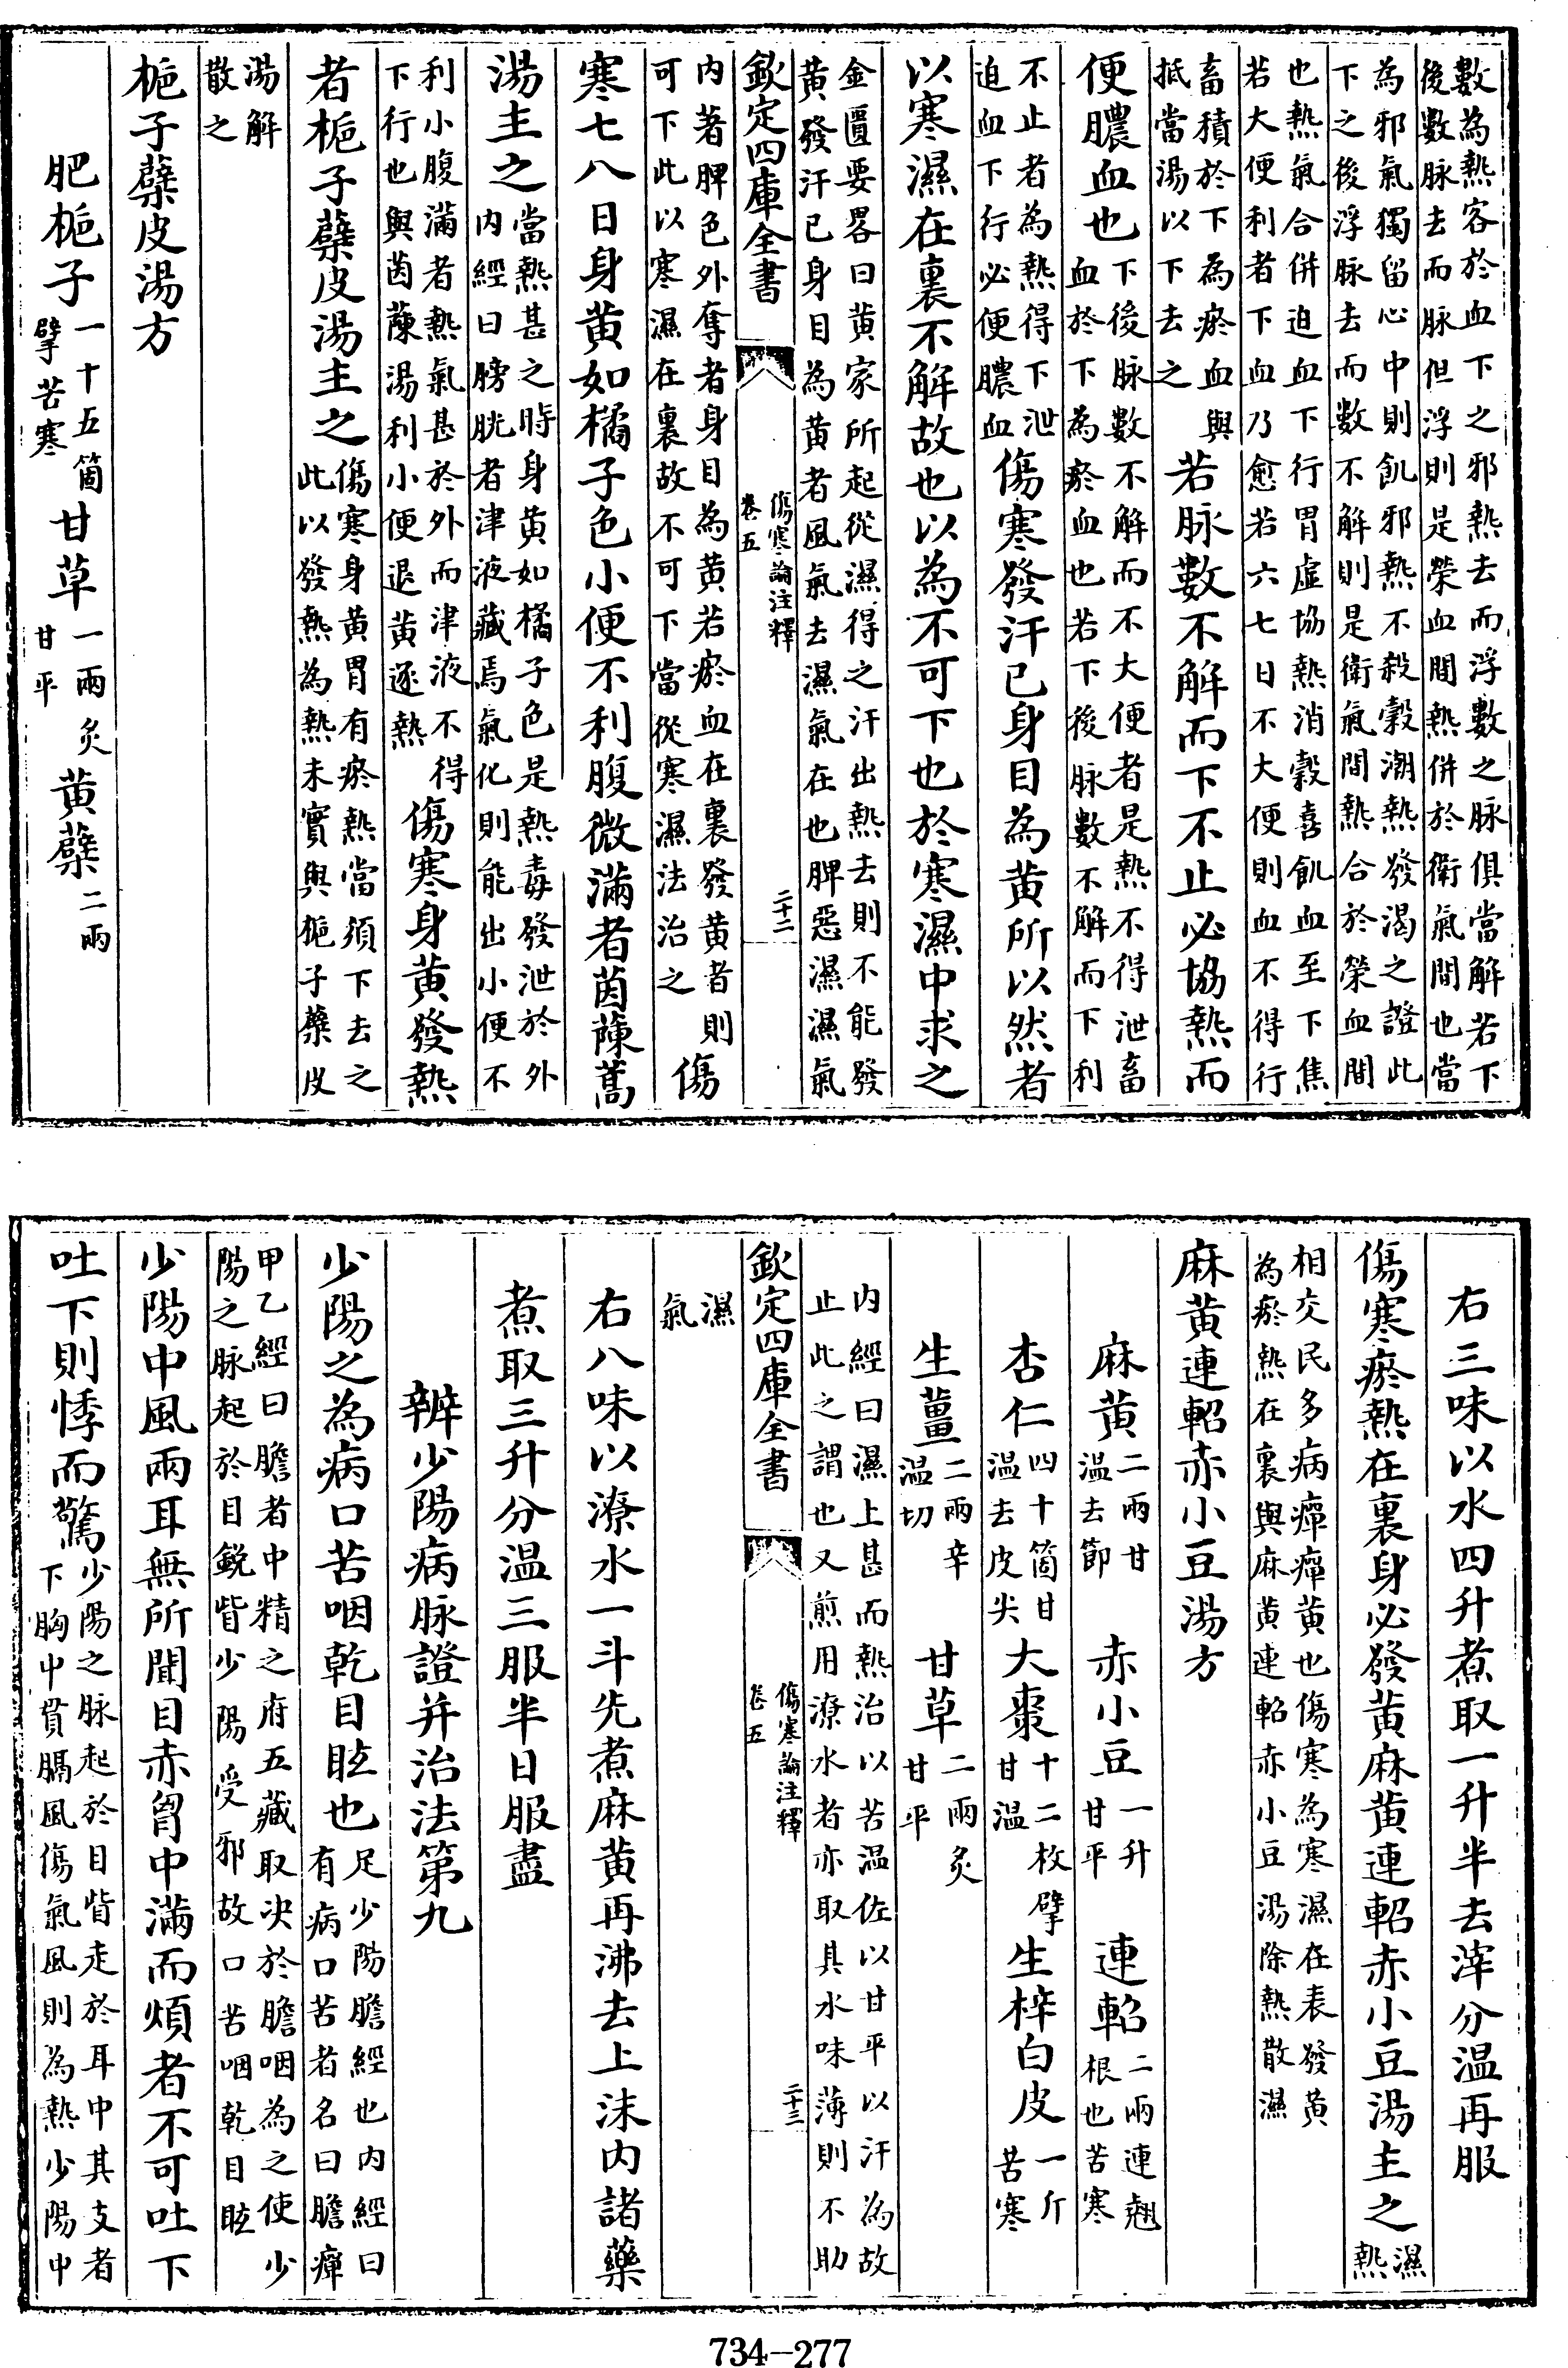 數為熱客於血下之邪熱去而浮數之脉俱當解若下
後數脉去而脉但浮則是榮血間熱併於衛氣間也當
為邪氣獨留心中則飢邪熱不殺穀潮熱發渴之證此
下之後浮脉去而數不解則是衛氣間熱合於榮血間
也熱氣合併迫血下行胃虛協熱消穀喜飢血至下焦
若大便利者下血乃愈若六七日不大便則血不得行
畜積於下為瘀血與
抵當湯以下去之
若脉數不解而下不止必協熱而
便膿血也
下後脉數不解而不大便者是熱不得泄畜
血於下為瘀血也若下後脉數不解而下利
不止者為熱得下泄
迫血下行必便膿血
傷寒發汗已身目為黃所以然者
以寒濕在裏不解故也以為不可下也於寒濕中求之
金匱要畧曰黃家所起從濕得之汗出熱去則不能發
黃發汗已身目為黃者風氣去濕氣在也脾惡濕濕氣
欽定四庫全書
傷寒論注釋
卷五
二十二
內著脾色外奪者身目為黃若瘀血在裏發黃者則
可下此以寒濕在裏故不可下當從寒濕法治之
傷
寒七八日身黃如橘子色小便不利腹微滿者茵蔯蒿
湯主之
當熱甚之時身黃如橘子色是熱毒發泄於外
內經曰膀胱者津液藏焉氣化則能出小便不
利小腹滿者熱氣甚於外而津液不得
下行也與茵蔯湯利小便退黃逐熱
傷寒身黃發熱
者梔子蘗皮湯主之
傷寒身黃胃有瘀熱當須下去之
此以發熱為熱未實與梔子蘗皮
湯解
散之
梔子蘗皮湯方
肥梔子
一十五箇
擘苦寒
甘草
一兩炙
甘平
黃蘗
二兩
右三味以水四升煮取一升半去滓分温再服
傷寒瘀熱在裏身必發黃麻黃連軺赤小豆湯主之
濕
熱
相交民多病癉癉黃也傷寒為寒濕在表發黃
為瘀熱在裏與麻黃連軺赤小豆湯除熱散濕
麻黃連軺赤小豆湯方
麻黃
二兩甘
温去節
赤小豆
一升
甘平
連軺
二兩連翹
根也苦寒
杏仁
四十箇甘
温去皮尖
大棗
十二枚擘
甘温
生梓白皮
一斤
苦寒
生薑
二兩辛
温切
甘草
二兩炙
甘平
內經曰濕上甚而熱治以苦温佐以甘平以汗為故
止此之謂也又煎用潦水者亦取其水味薄則不助
欽定四庫全書
傷寒論注釋
卷五
二十三
濕
氣
右八味以潦水一斗先煮麻黃再沸去上沫內諸藥
煮取三升分温三服半日服盡
辨少陽病脉證并治法第九
少陽之為病口苦咽乾目眩也
足少陽膽經也內經曰
有病口苦者名曰膽癉
甲乙經曰膽者中精之府五藏取決於膽咽為之使少
陽之脉起於目銳眥少陽受邪故口苦咽乾目眩
少陽中風兩耳無所聞目赤胷中滿而煩者不可吐下
吐下則悸而驚
少陽之脉起於目眥走於耳中其支者
下胸中貫膈風傷氣風則為熱少陽中
734-277